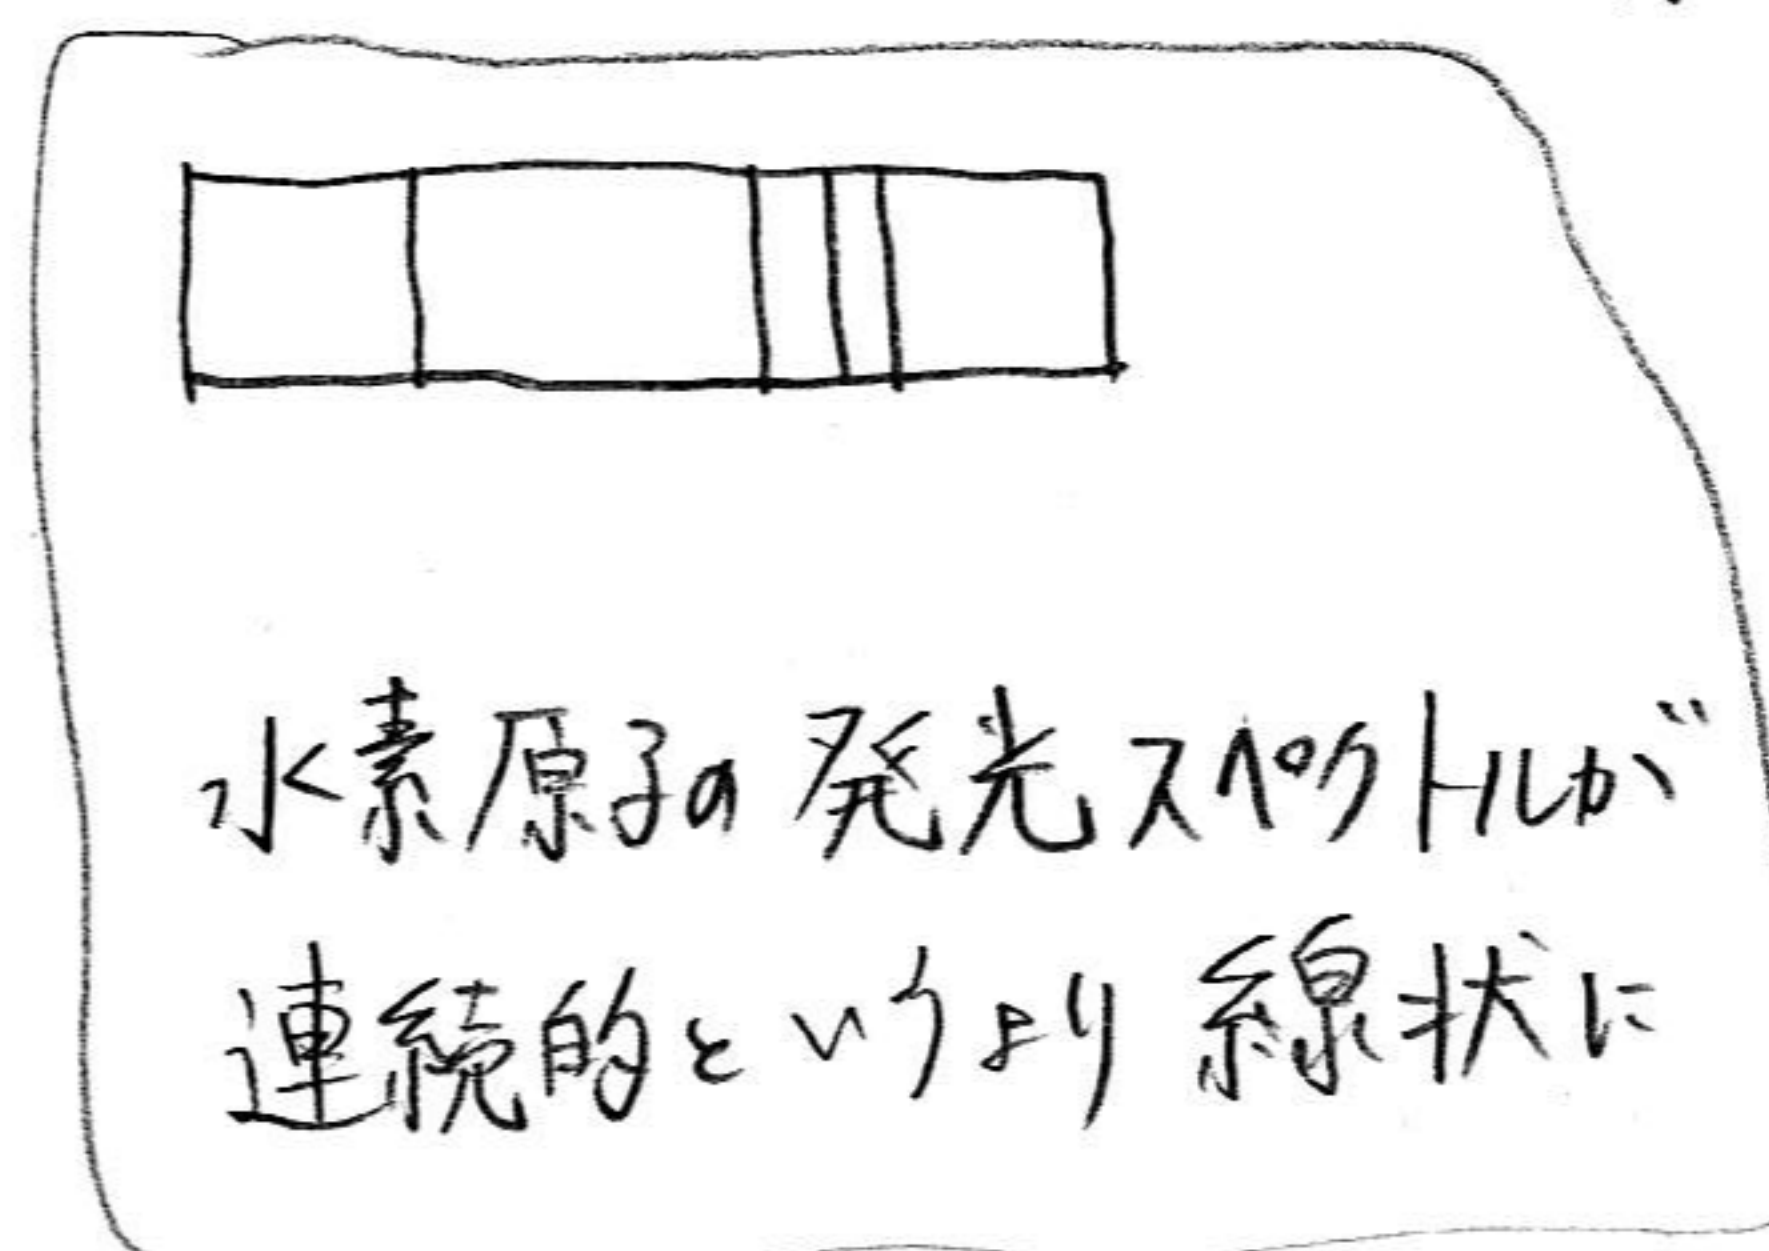 水素原子の発光スペクトルが
連続的というより線状に